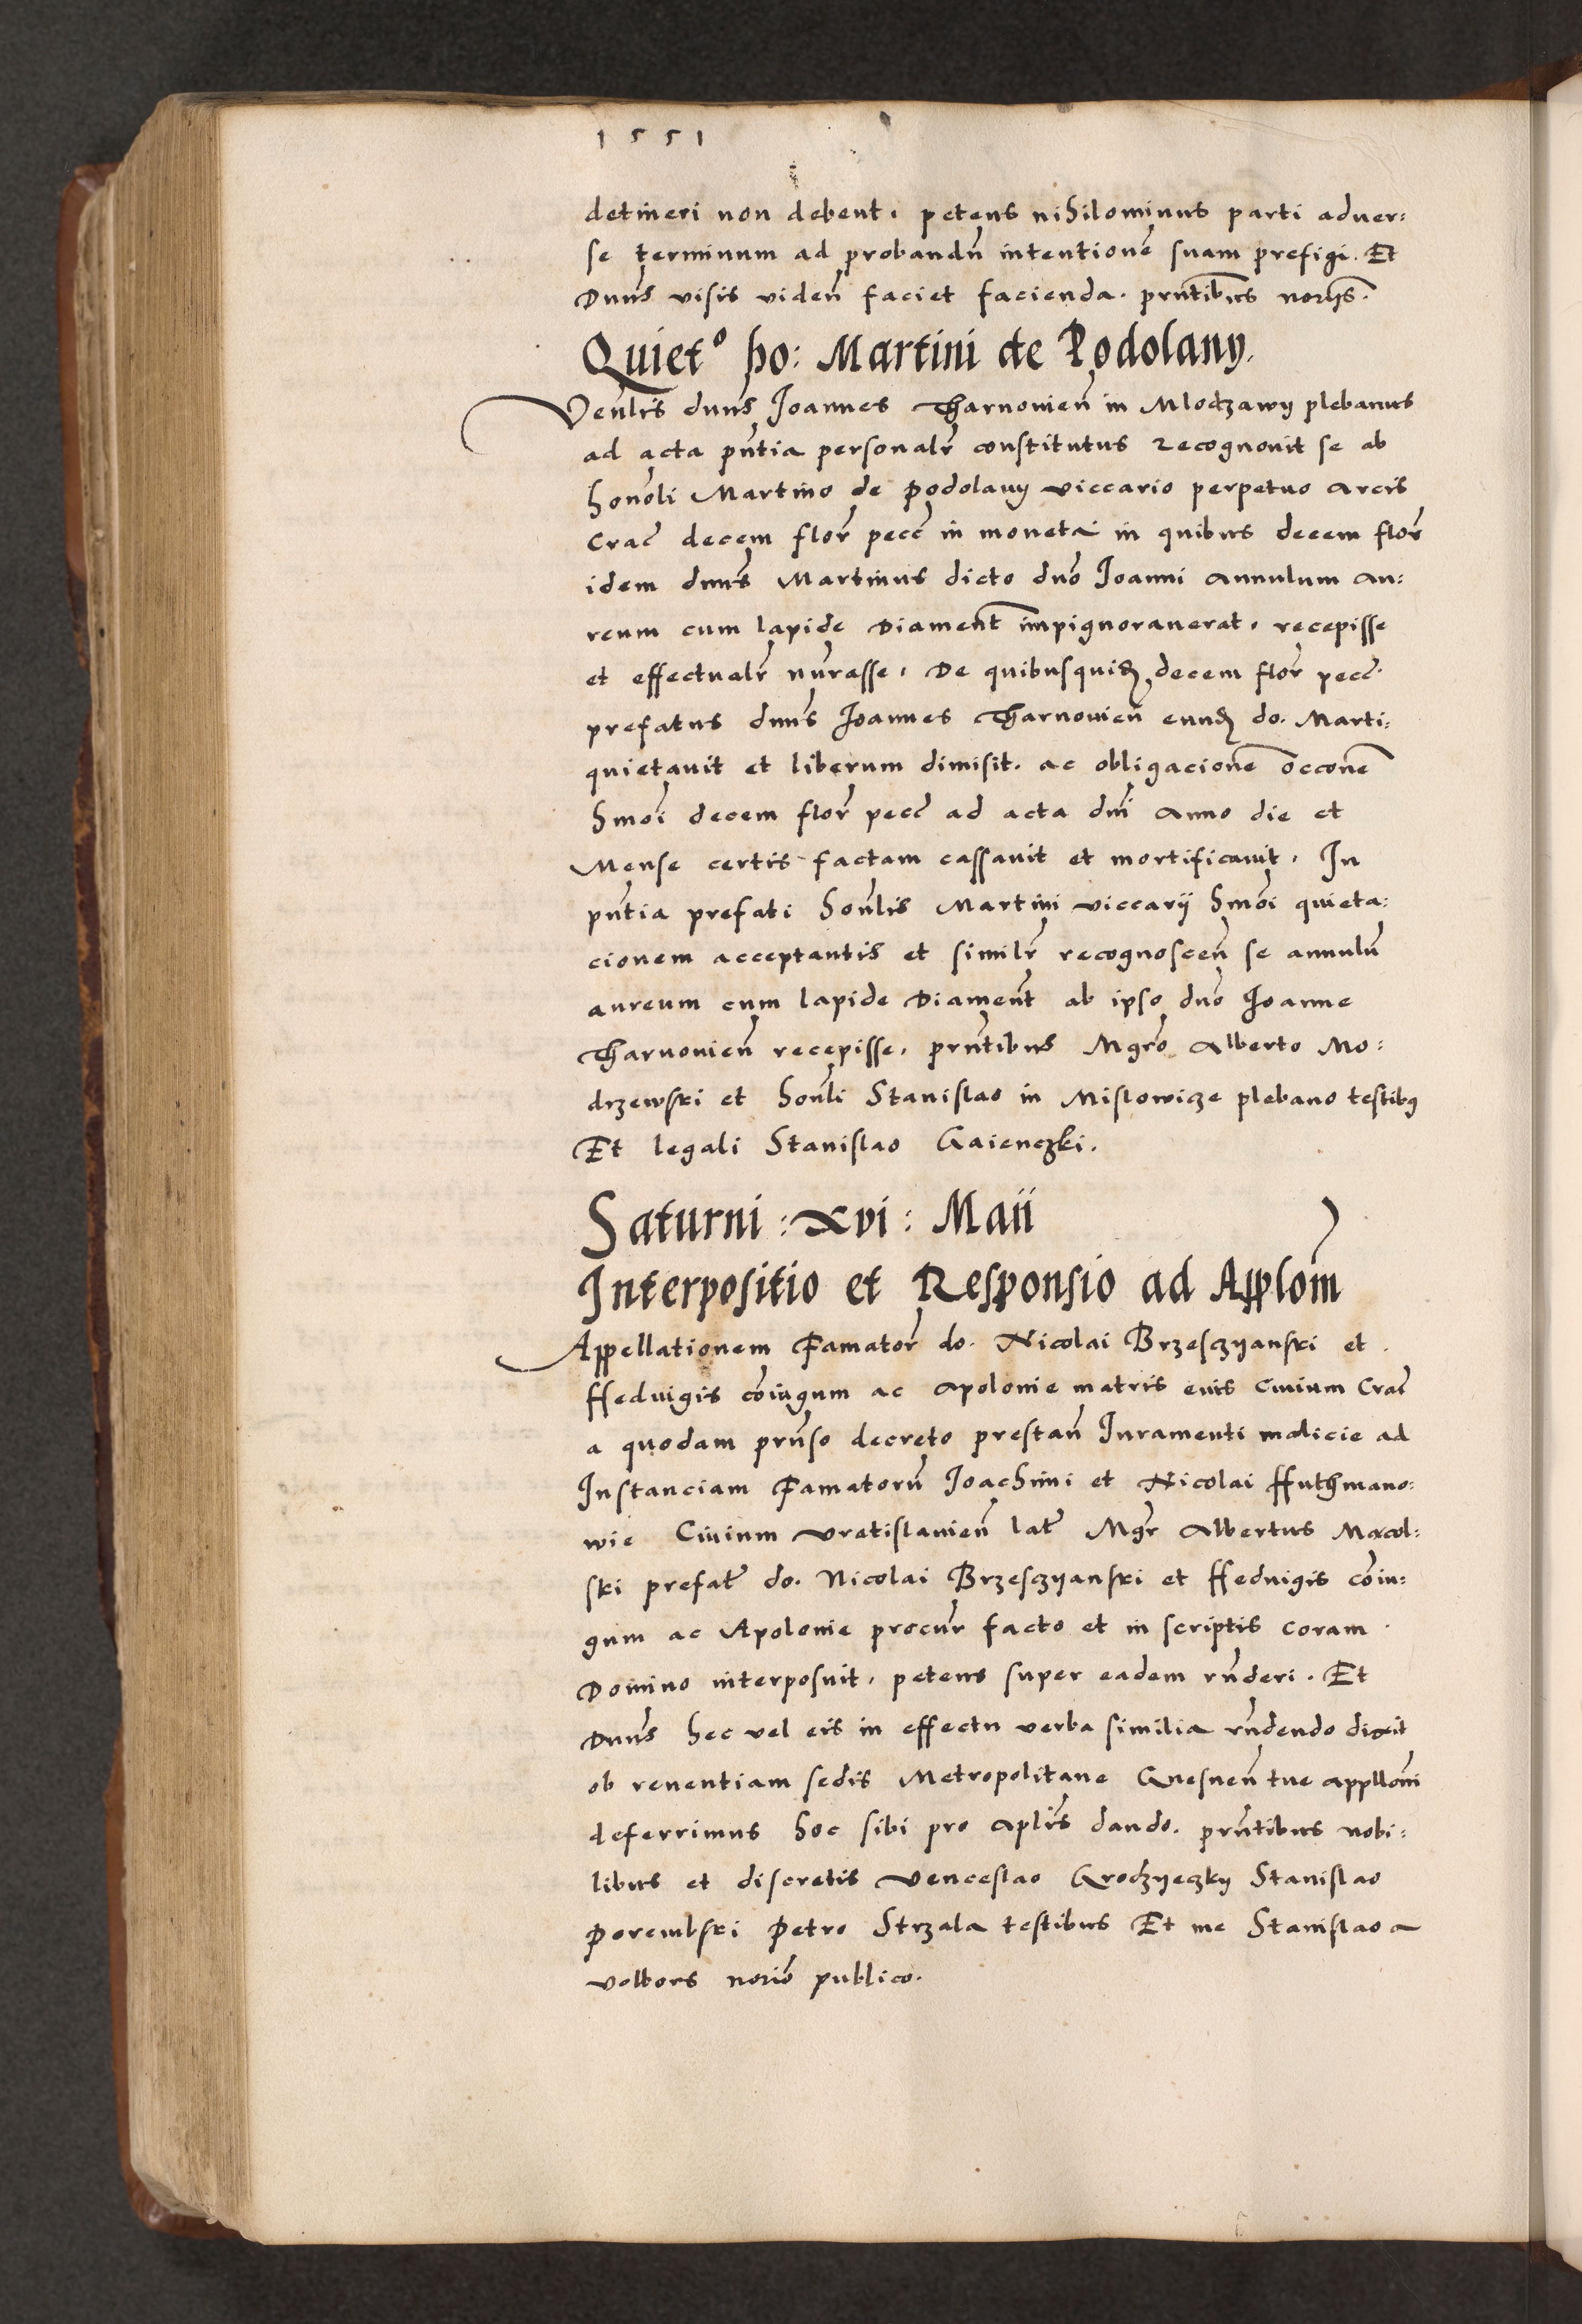 1551
detineri non debent. petens nihilominus parti aduer:
se terminum ad probandū intentionē suam prefigi. Et
Dnūs visis videñ faciet facienda. prntibūs norijs.
Quietº ho: Martini de Podolany.
Venlīs dnūs Joannes Tharnouieñ in Mlodzawy plebanus
ad acta pñtia personalr̄ constitutus recognouit se ab
honōli Martino de Podolany viccario perpetuo arcis
Crac̄ decem flor̄ pecc̄ in moneta in quibus decem flor̄
idem dnūs Martinus dicto dnō Joanni annulum au:
reum cum lapide Diament̄ impignorauerat. recepisse
et effectualr̄ nūrasse. De quibusquidꝫ decem flor̄ pecc̄
prefatus dnūs Joannes Tharnouieñ eundꝫ do. Marti:
quietauit et liberum dimisit. ac obligacionē occonē
hmōi decem flor̄ pecc̄ ad acta dnī anno die et
Mense certis factam cassauit et mortificauit. In
pñtia prefati honlīs Martini viccarij hmōi quieta:
cionem acceptantis et similr̄ recognosceñ se annulū
aureum cum lapide Diament̄ ab ipso dnō Joanne
Tharnouieñ recepisse. prñtibus Mgrō Alberto Mo:
drzewski et honlī Stanislao in Mislowicze plebano testibꝰ
Et legali Stanislao Gaienczki.
Saturni : xvi : Maii
Interpositio et Responsio ad Applom̄
Appellationem Famator̄ do. Nicolai Brzesczyanski et
Hedvigis cōiugum ac Apolonie matris eius Ciuium Crac̄
a quodam prñso decreto prestañ Iuramenti malicie ad
Instanciam Famatorū Joachimi et Nicolai Huthmano:
wie Ciuium Vretislauieñ lat̄ Mgr̄ Albertus Maxol:
ski prefat̄ do. Nicolai Brzesczyanski et Hedvigis cōiu:
gum ac Apolonie procur̄ facto et in scriptis coram
Domino interposuit. petens super eadem rñderi. Et
Dnūs hec vel eis in effectu verba similia rñdendo dixit
ob reuentiam sedis Metropolitane Gnesneñ tue applloni
deferrimus hoc sibi pro aplīs dando. prñtibus nobi:
libus et discretis Venceslao Grodzyeczky Stanislao
Porembski Petro Strzala testibus Et me Stanislao a
Volbors noriō publico.